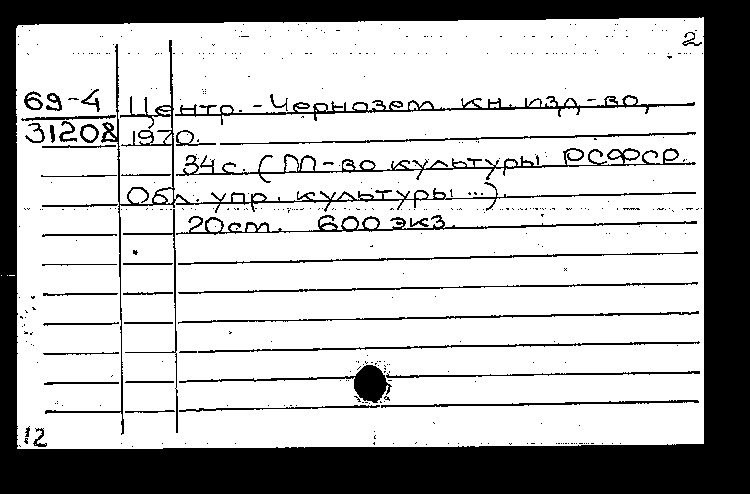 2
69-4 Центр.-Чернозем. кн. изд-во,
31208 1970.
34 с. (М-во культуры РСФСР.
Обл. упр. культуры ...).
20 см. 600 экз.
12